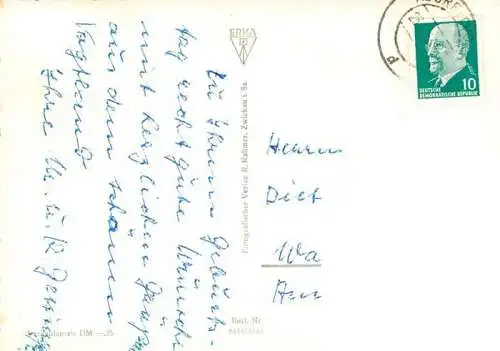 Zu Ihrem Geburts-
tag recht gute Wünsche
mit herzlichen Grüßen
aus dem schönen
Vogtland
Ihre
ERKA
Fotografischer Verlag R. Kallmer, Zwickau i. Sa.
Best. Nr.
DM —.25
DEUTSCHE
DEMOKRATISCHE REPUBLIK
10
Herrn
Diet
Wa